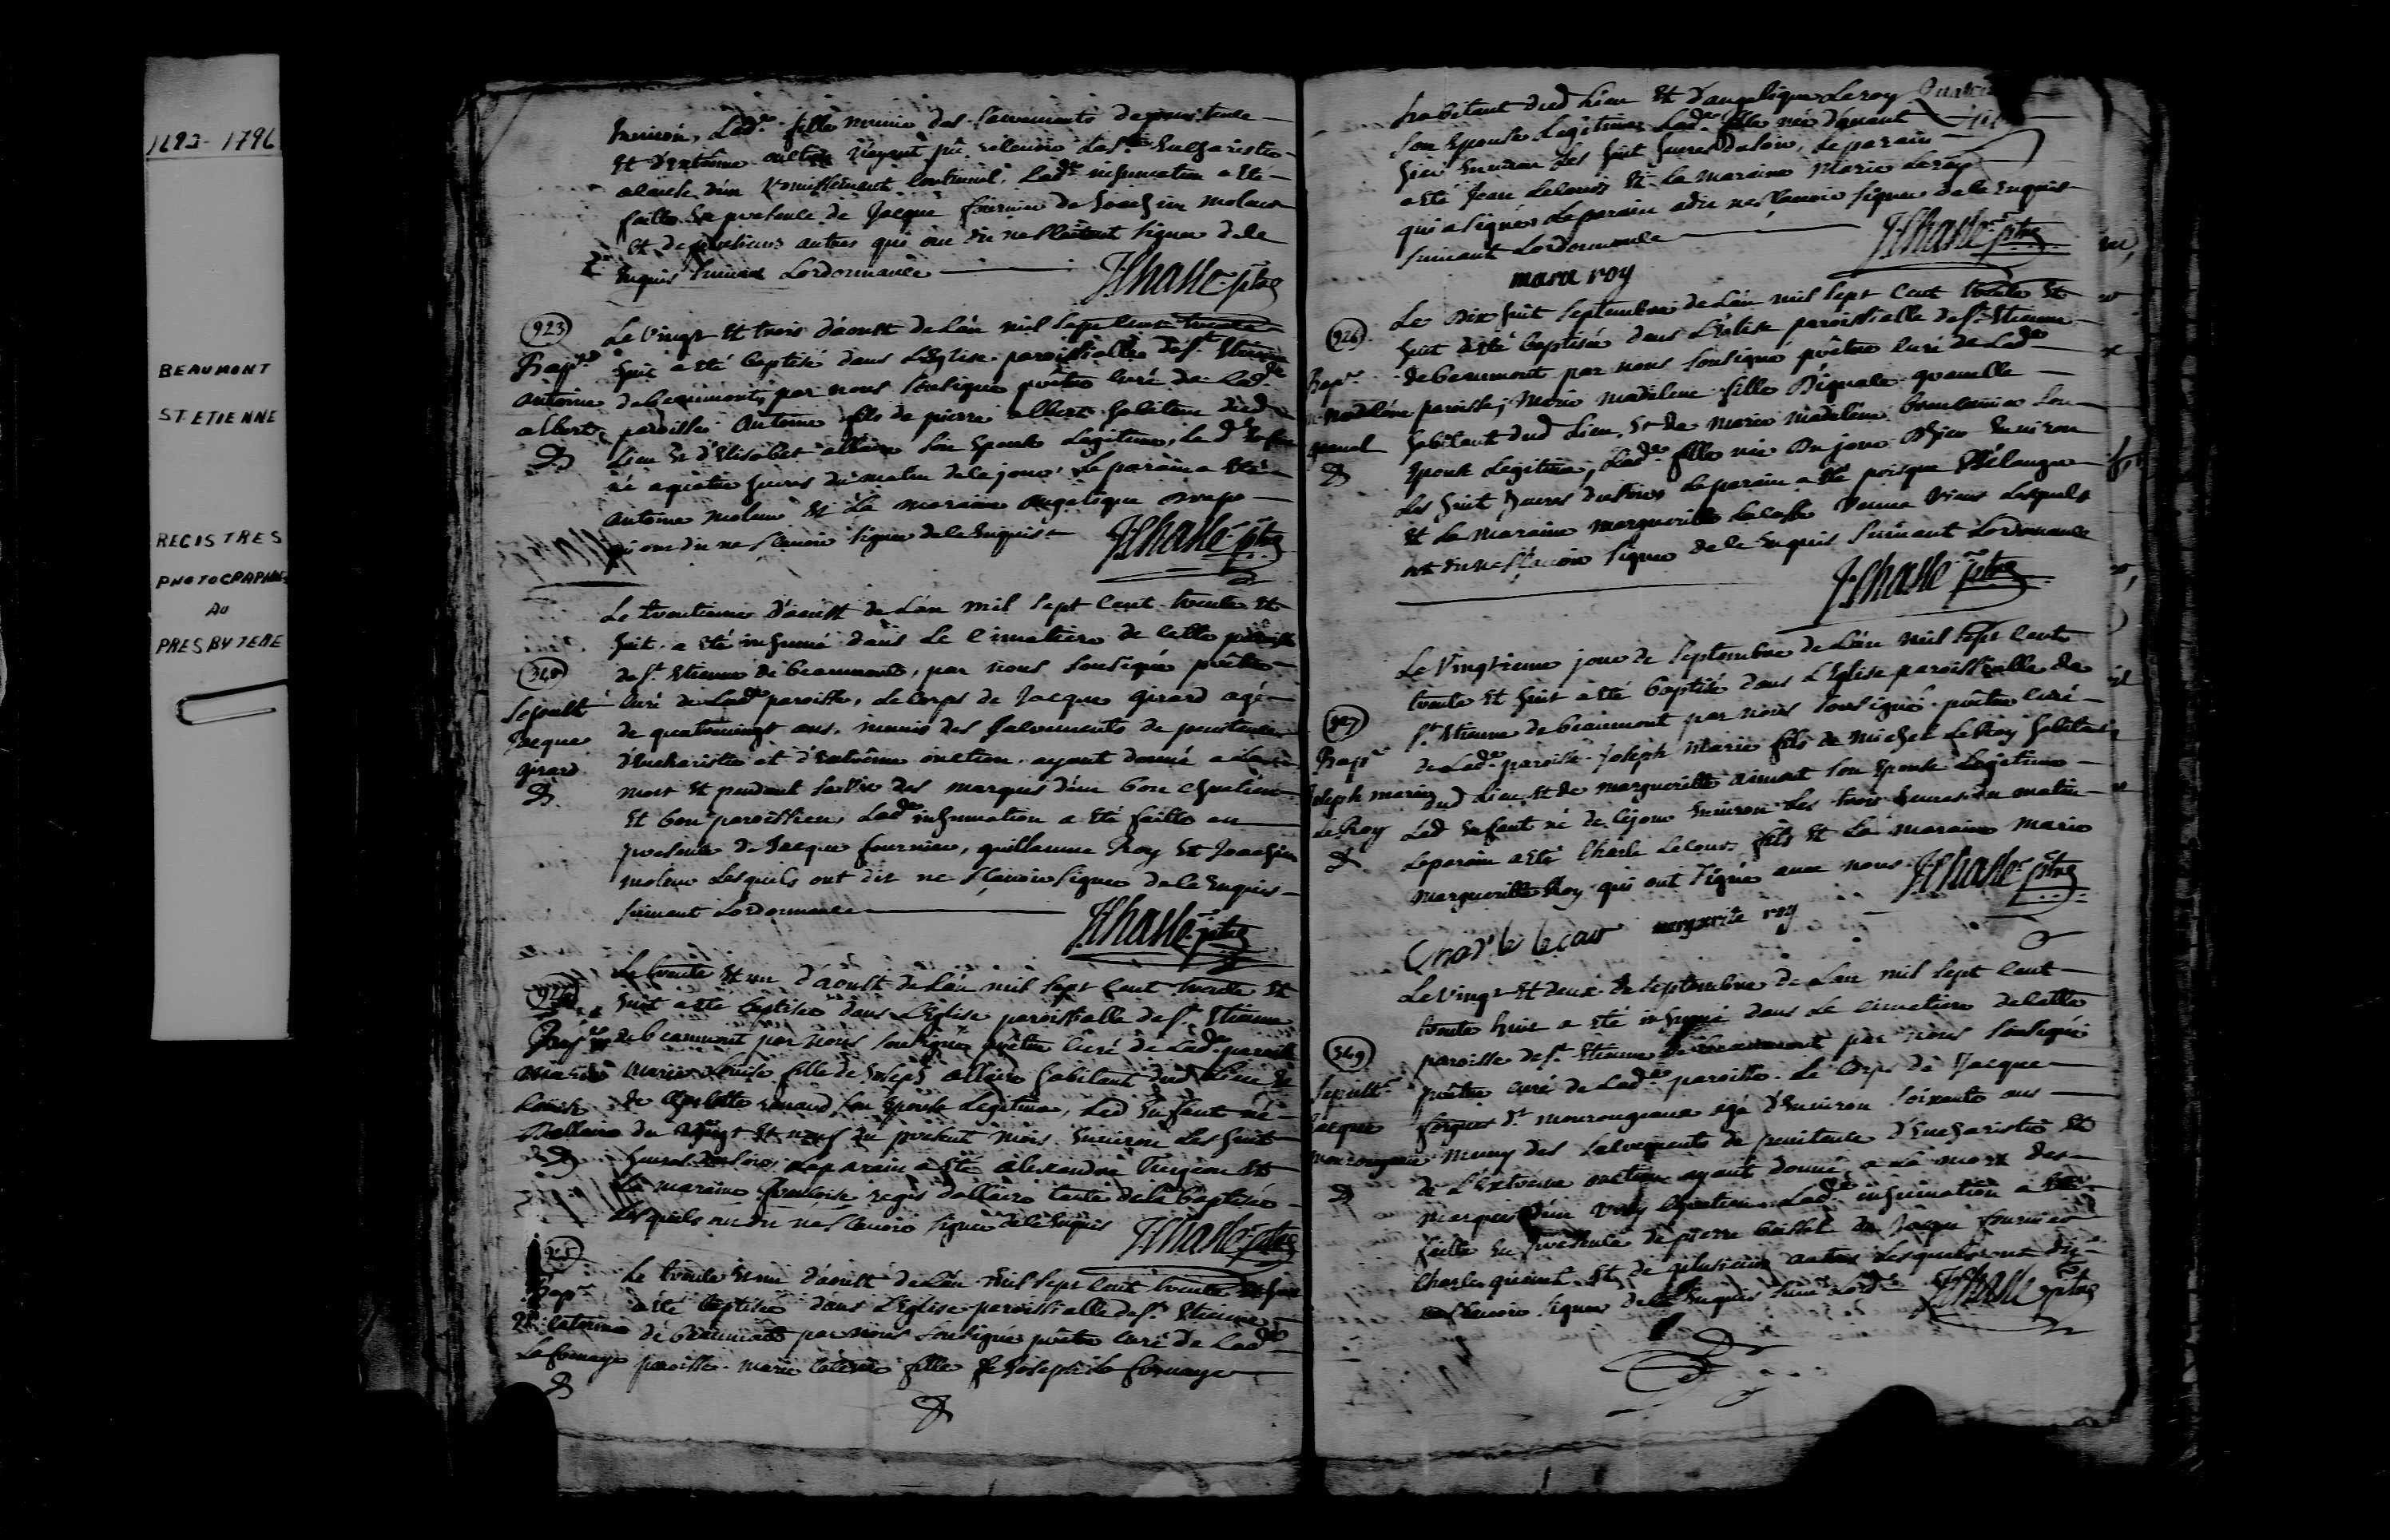 1692-1796
BEAUMONT
ST ETIENNE
REGISTRES
PHOTOGRAPHIES
AU
PRESBYTERE
Environ, Lad.e fille munie des sacrements de penitence
et d'extrême onction n'ayant pû recevoir La S.te Eucharistie
a cause d'un vomissement continuel. Lad.e inhumation a été
faitte En presence de Jacque fournier de Joachim moleur
et de plusieurs autres qui ont dit ne sçavoir signer de ce
Enquis suivant Lordonnance
J. Chasle ptre
923
Bap.e
antoine
albert
Le vingt et trois d'aoust de L'an mil sept cent trente
huit a été baptisé dans L'Eglise paroissialle de S.t Etienne
de beaumont, par nous soussigné prêtre curé de Lad.e
paroisse Antoine fils de pierre albert habitant dud
Lieu et d'Elisabet allaire son Epouse Legitime, Led
né a quatre heures du matin de ce jour, Le parain a été
antoine moleur et La maraine angelique
qui ont dit ne sçavoir signer de ce Enquis
J. Chasle ptre
348
Sepult
Jacque
girard
Le trentieme d'aoust de L'an mil sept cent trente et
huit a été inhumé dans Le cimetiere de cette paroisse
de S.t Etienne de beaumont, par nous soussigné prêtre
curé de Lad.e paroisse, Le corps de Jacque girard agé
de quatrevingt ans, munis des sacrements de penitence
d'Eucharistie et d'Extrême onction ayant donné a La
mort et pendant sa vie des marques d'un bon chretien
et bon paroissien, Lad.e inhumation a été faitte en
presence de Jacque fournier, guillaume Roy et Joachim
moleur Lesquels ont dit ne sçavoir signer de ce Enquis
suivant Lordonnance
J. Chasle ptre
924
Bap.e
marie
Louise
Dallaire
Le trente et un d'aoust de L'an mil sept cent trente et
huit a été baptisée dans L'Eglise paroissialle de S.t Etienne
de beaumont par nous soussigné prêtre curé de Lad.e paroisse
marie Louise fille de Joseph allaire habitant dud Lieu et
de Charlotte renaud son Epouse Legitime, Led Enfant né
du vingt et neuf du present mois Environ Les huit
heures du soir, Le parain a été alexandre Turgeon et
La maraine françoise regis dallaire tante de la baptisée
Lesquels ont dit ne sçavoir signer de ce Enquis
J. Chasle ptre
925
Bap.e
M. Caterine
La Cornaye
Le trente et un d'aoust de L'an mil sept cent trente et huit
a été baptisée dans L'Eglise paroissialle de S.t Etienne
de beaumont par nous soussigné prêtre curé de Lad.e
paroisse marie Caterine fille de Joseph La Cornaye
habitant dud Lieu et d'angelique Leroy
son Epouse Legitime, Lad.e fille née d'avant
hier Environ Les huit heures du soir, Le parain
a été Jean Lecours et La maraine Marie Leroy
qui a signé, Le parain a dit ne sçavoir signer de ce Enquis
suivant Lordonnance
J. Chasle ptre
mara roy
926
Bap.e
Madeléne
quenel
Le Dix huit septembre de L'an mil sept cent trente et
huit a été baptisée dans L'Eglise paroissialle de S.t Etienne
de beaumont par nous soussigné prêtre curé de Lad.e
paroisse, Marie Madelene fille
habitant dud Lieu, et de Marie Madeléne
Epouse Legitime, Lad.e fille née Du jour D'hier Environ
Les huit heures du soir, Le parain a été
et La maraine marguerite Lacasse Lesquels
ont dit ne sçavoir signer de ce Enquis suivant Lordonnance
J. Chasle ptre
927
Bap.e
Joseph marie
Le Roy
Le vingtieme jour de septembre de L'an mil sept cent
trente et huit a été baptisé dans L'Eglise paroissialle de
S.t Etienne de beaumont par nous soussigné prêtre curé
de Lad.e paroisse Joseph Marie fils de michel Le Roy habitant
dud Lieu et de marguerite son Epouse Legitime
Led Enfant né de ce jour Environ Les trois heures du matin
Le parain a été Charle Lecours fils et La maraine Marie
Margueritte Roy qui ont signé avec nous
J. Chasle ptre
Charle lecour
margarite roy
349
Sepult.e
Jacque
Le vingt et deux de septembre de L'an mil sept cent
trente huit a été inhumé dans Le cimetiere de cette
paroisse de S.t Etienne de beaumont par nous soussigné
prêtre curé de Lad.e paroisse Le corps de Jacque
forgues d.t mourougeaux agé d'Environ soixante ans
Muny des sacrements de penitence d'Eucharistie et
de L'extreme onction ayant donné a La mort des
marques d'un vray chretien Lad.e inhumation a été
faitte en presence de pierre de Jacque fournier
Charles et de plusieurs autres Lesquels ont dit
ne sçavoir signer de ce Enquis suiv.t Lord.ce
J. Chasle ptre